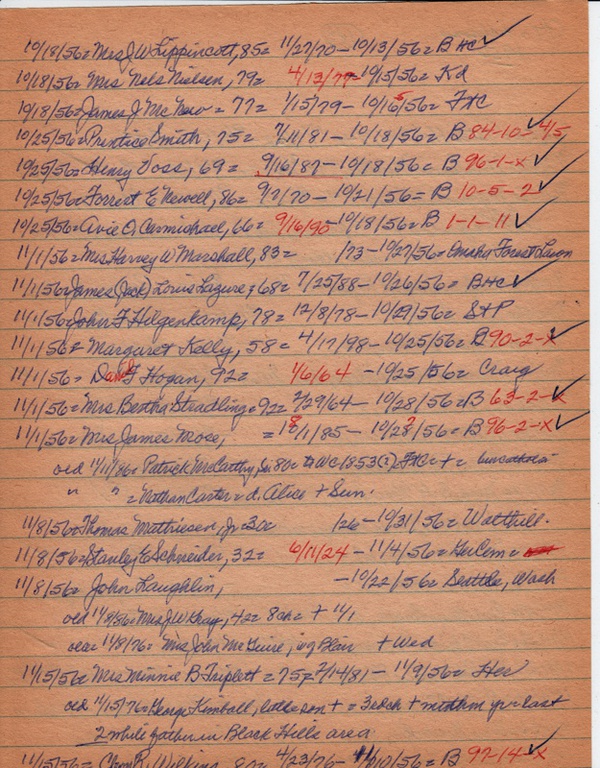 10/18/56= Mrs J W Lippincott, 85= 11/27/70 - 10/13/56= B HC ✓
10/18/56= Mrs Nels Nielsen, 79= 4/13/77 - 10/15/56= Kd
10/18/56= James J McNew = 77= 1/15/79 - 10/16/56= FXC
10/25/56= Prentice Smith, 75= 7/11/81 - 10/18/56= B 84-10-4/5 ✓
10/25/56= Henry Voss, 69= 9/16/87 - 10/18/56= B 96-1-x ✓
10/25/56= Forrest E Newell, 86= 9/7/70 - 10/21/56= B 10-5-2 ✓
10/25/56= Avie O. Carmichael, 66= 9/16/90 - 10/18/56= B 1-1-11 ✓
11/1/56= Mrs Harvey W Marshall, 83= /73 - 10/27/56= Omaha Forest Lawn
11/1/56= James (Jack) Louis Lazure, 68= 7/25/88 - 10/26/56= B HC ✓
11/1/56= John F Hilgenkamp, 78= 12/8/78 - 10/29/56= S+P
11/1/56= Margaret Kelly, 58= 4/17/98 - 10/25/56= B 90-2-x ✓
11/1/56= F Hogan, 92= 1/6/64 - 10/25/56= Craig
11/1/56= Mrs Bertha Stradling= 92= 2/29/64 - 10/28/56= B 63-2-x ✓
11/1/56= Mrs James Mose, = /1/85 - 10/28/56= B 96-2-x ✓
old 11/11/86= Patrick McCarthy, Sr 80= WC/1853(?) FXC= +=
" " = Nathan Carter= d. Alice + Sun.
11/8/56= Thomas Mathiesen, Jr= 30= /26 - 10/31/56= Walthill.
11/8/56= Stanley E Schneider, 32= 6/11/24 - 11/4/56= GerCem=
11/8/56= John Laughlin, - 10/22/56= Seattle, Wash
old 11/8/56= Mrs J W Gray, 4= 8ch= + 11/1
old= 11/8/76= Mrs John McGuire, Blair + Wed
11/15/56= Mrs Minnie B Triplett = 75= 2/14/81 - 11/9/56= Her
old 11/15/76= George Kimball, + = 3dch + yr= last
2 while gather in Black Hills area
11/15/56= Chas R. Wilkins, 80= 4/23/76 - 11/10/56= B 97-14-x ✓